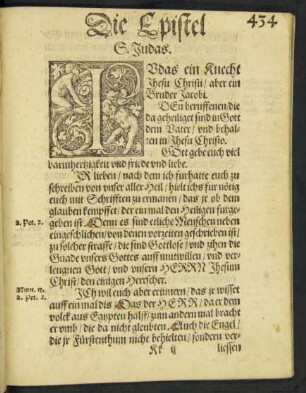 Die Epistel
434
S. Judas.
JVdas ein Knecht
Jhesu Christi / aber ein
Bruder Jacobi.
DEn beruffenen / die
da geheiliget sind in Gott
dem Vater / vnd behal-
ten in Jhesu Christo.
GOtt gebe euch viel
barmhertzigkeit vnd friede vnd liebe.
JR lieben / nach dem ich furhatte euch zu
schreiben von vnser aller Heil / hielt ichs fur nötig
euch mit Schrifften zu ermanen / das jr ob dem
glauben kempffet / der ein mal den Heiligen furge-
2. Pet. 2.
geben ist. Denn es sind etliche Menschen neben
eingeschlichen / von denen vorzeiten geschrieben ist /
zu solcher straffe / die sind Gottlose / vnd zihen die
Gnade vnsers Gottes auff mutwillen / vnd ver-
leugnen Gott / vnd vnsern HERRN Jhesum
Christ / den einigen Herrscher.
2. Pet. 2.
JCh wil euch aber erinnern / das jr wisset
auff ein mal dis / Das der HERR / da er dem
volck aus Egypten halff / zum andern mal bracht
er vmb / die da nicht gleubten. Auch die Engel /
die jr Fürstenthum nicht behielten / sondern ver-
Kk ij
liessen